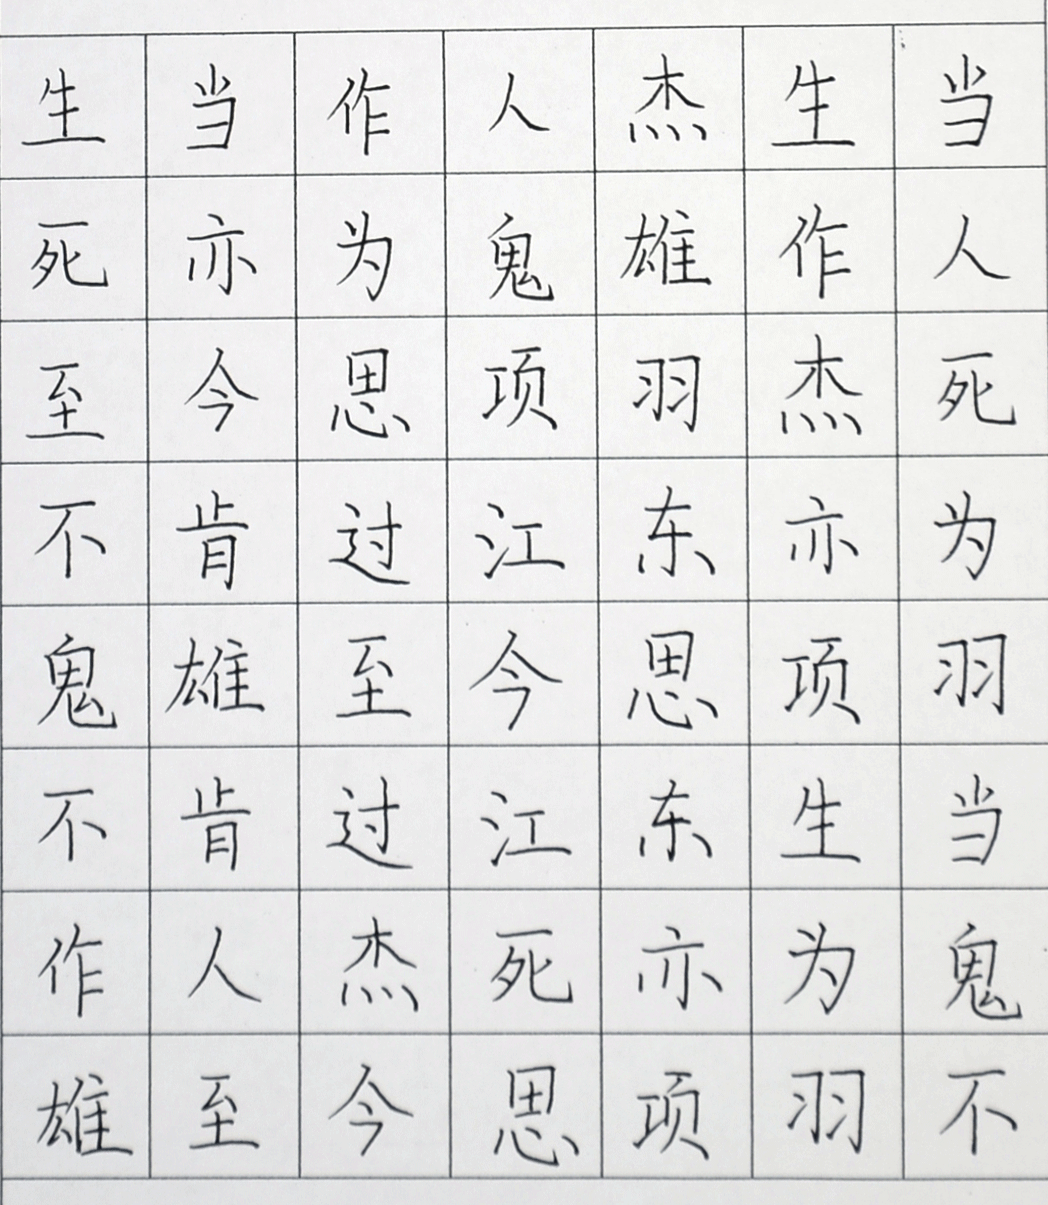 生当作人杰生当
死亦为鬼雄作人
至今思项羽杰死
不肯过江东亦为
鬼雄至今思项羽
不肯过江东生当
作人杰死亦为鬼
雄至今思项羽不